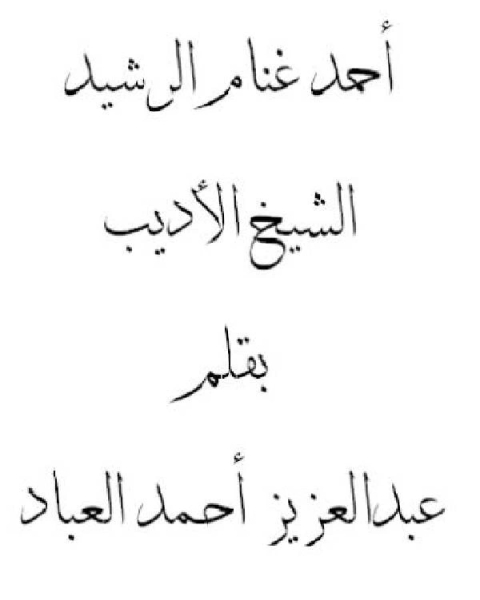 أحمد غنام الرشيد
الشيخ الأديب
بقلم
عبدالعزيز أحمد العباد